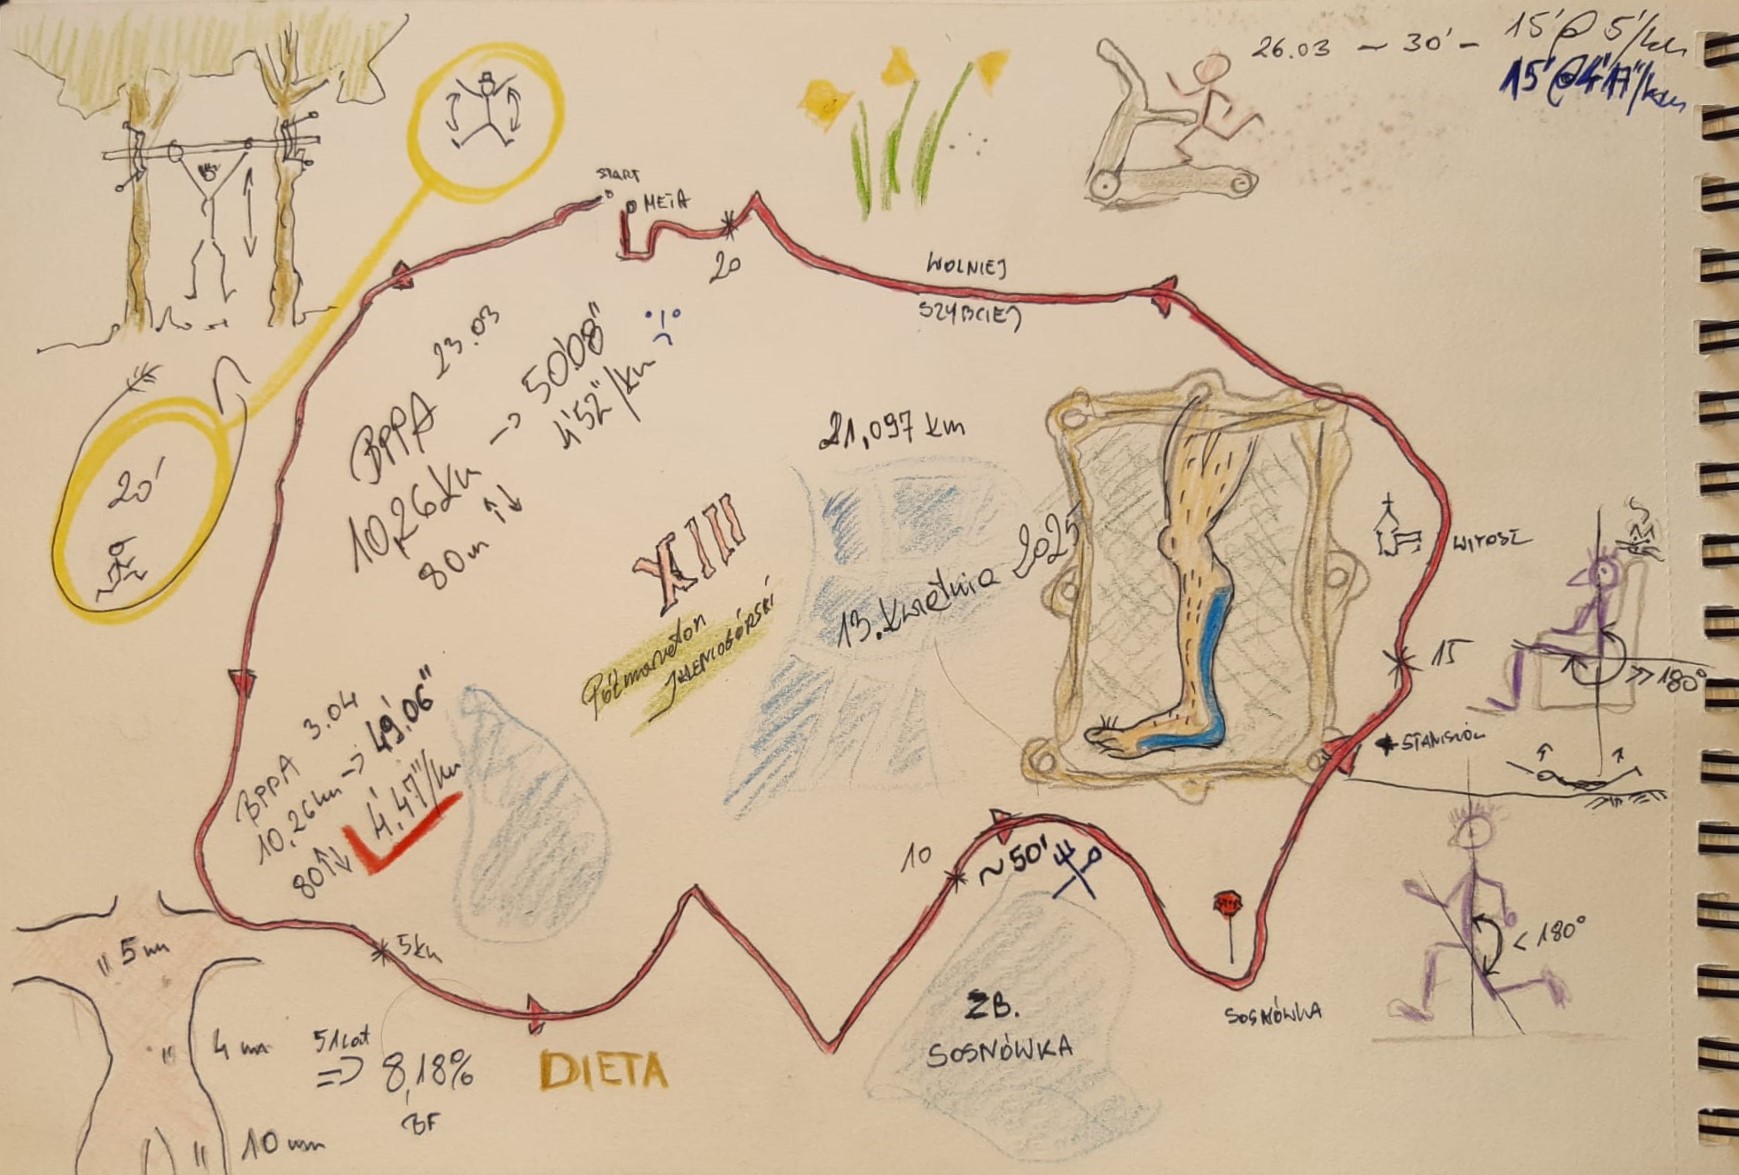 26.03 ~ 30' - 15' @ 5'/km
15' @ 4'17"/km
START
META
20
WOLNIEJ
SZYBCIEJ
BPPA 23.03
10,26 km -> 50'08"
4'52"/km
80m ↑↓
20'
21,097 km
XIII
Półmaraton
JELENIOGÓRSKI
13. kwietnia 2025
15
>> 180°
STANISZÓW
BPPA 3.04
10,26 km -> 49'06"
4'47"/km
80 ↑↓
10
~50'
STOP
< 180°
5 km
5 mm
4 mm
10 mm
51 lat
=> 8,18%
BF
DIETA
ZB.
SOSNÓWKA
SOSNÓWKA